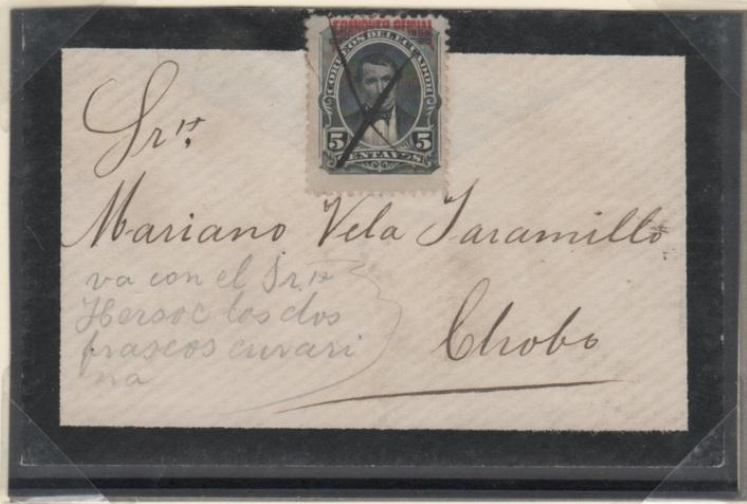 FRANQUEO OFICIAL
CORREOS DEL ECUADOR
5 5
CENTAVOS
Sr. Dn.
Mariano Vela Jaramillo
va con el Sr. Dn.
los dos
frascos curari
na
Chobo